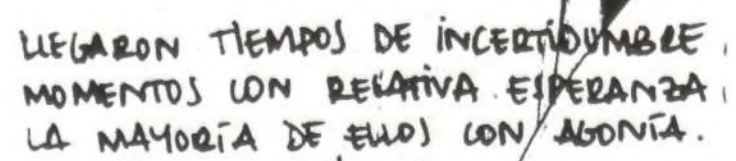 LLEGARON TIEMPOS DE INCERTIDUMBRE,
MOMENTOS CON RELATIVA ESPERANZA,
LA MAYORÍA DE ELLOS CON AGONÍA.